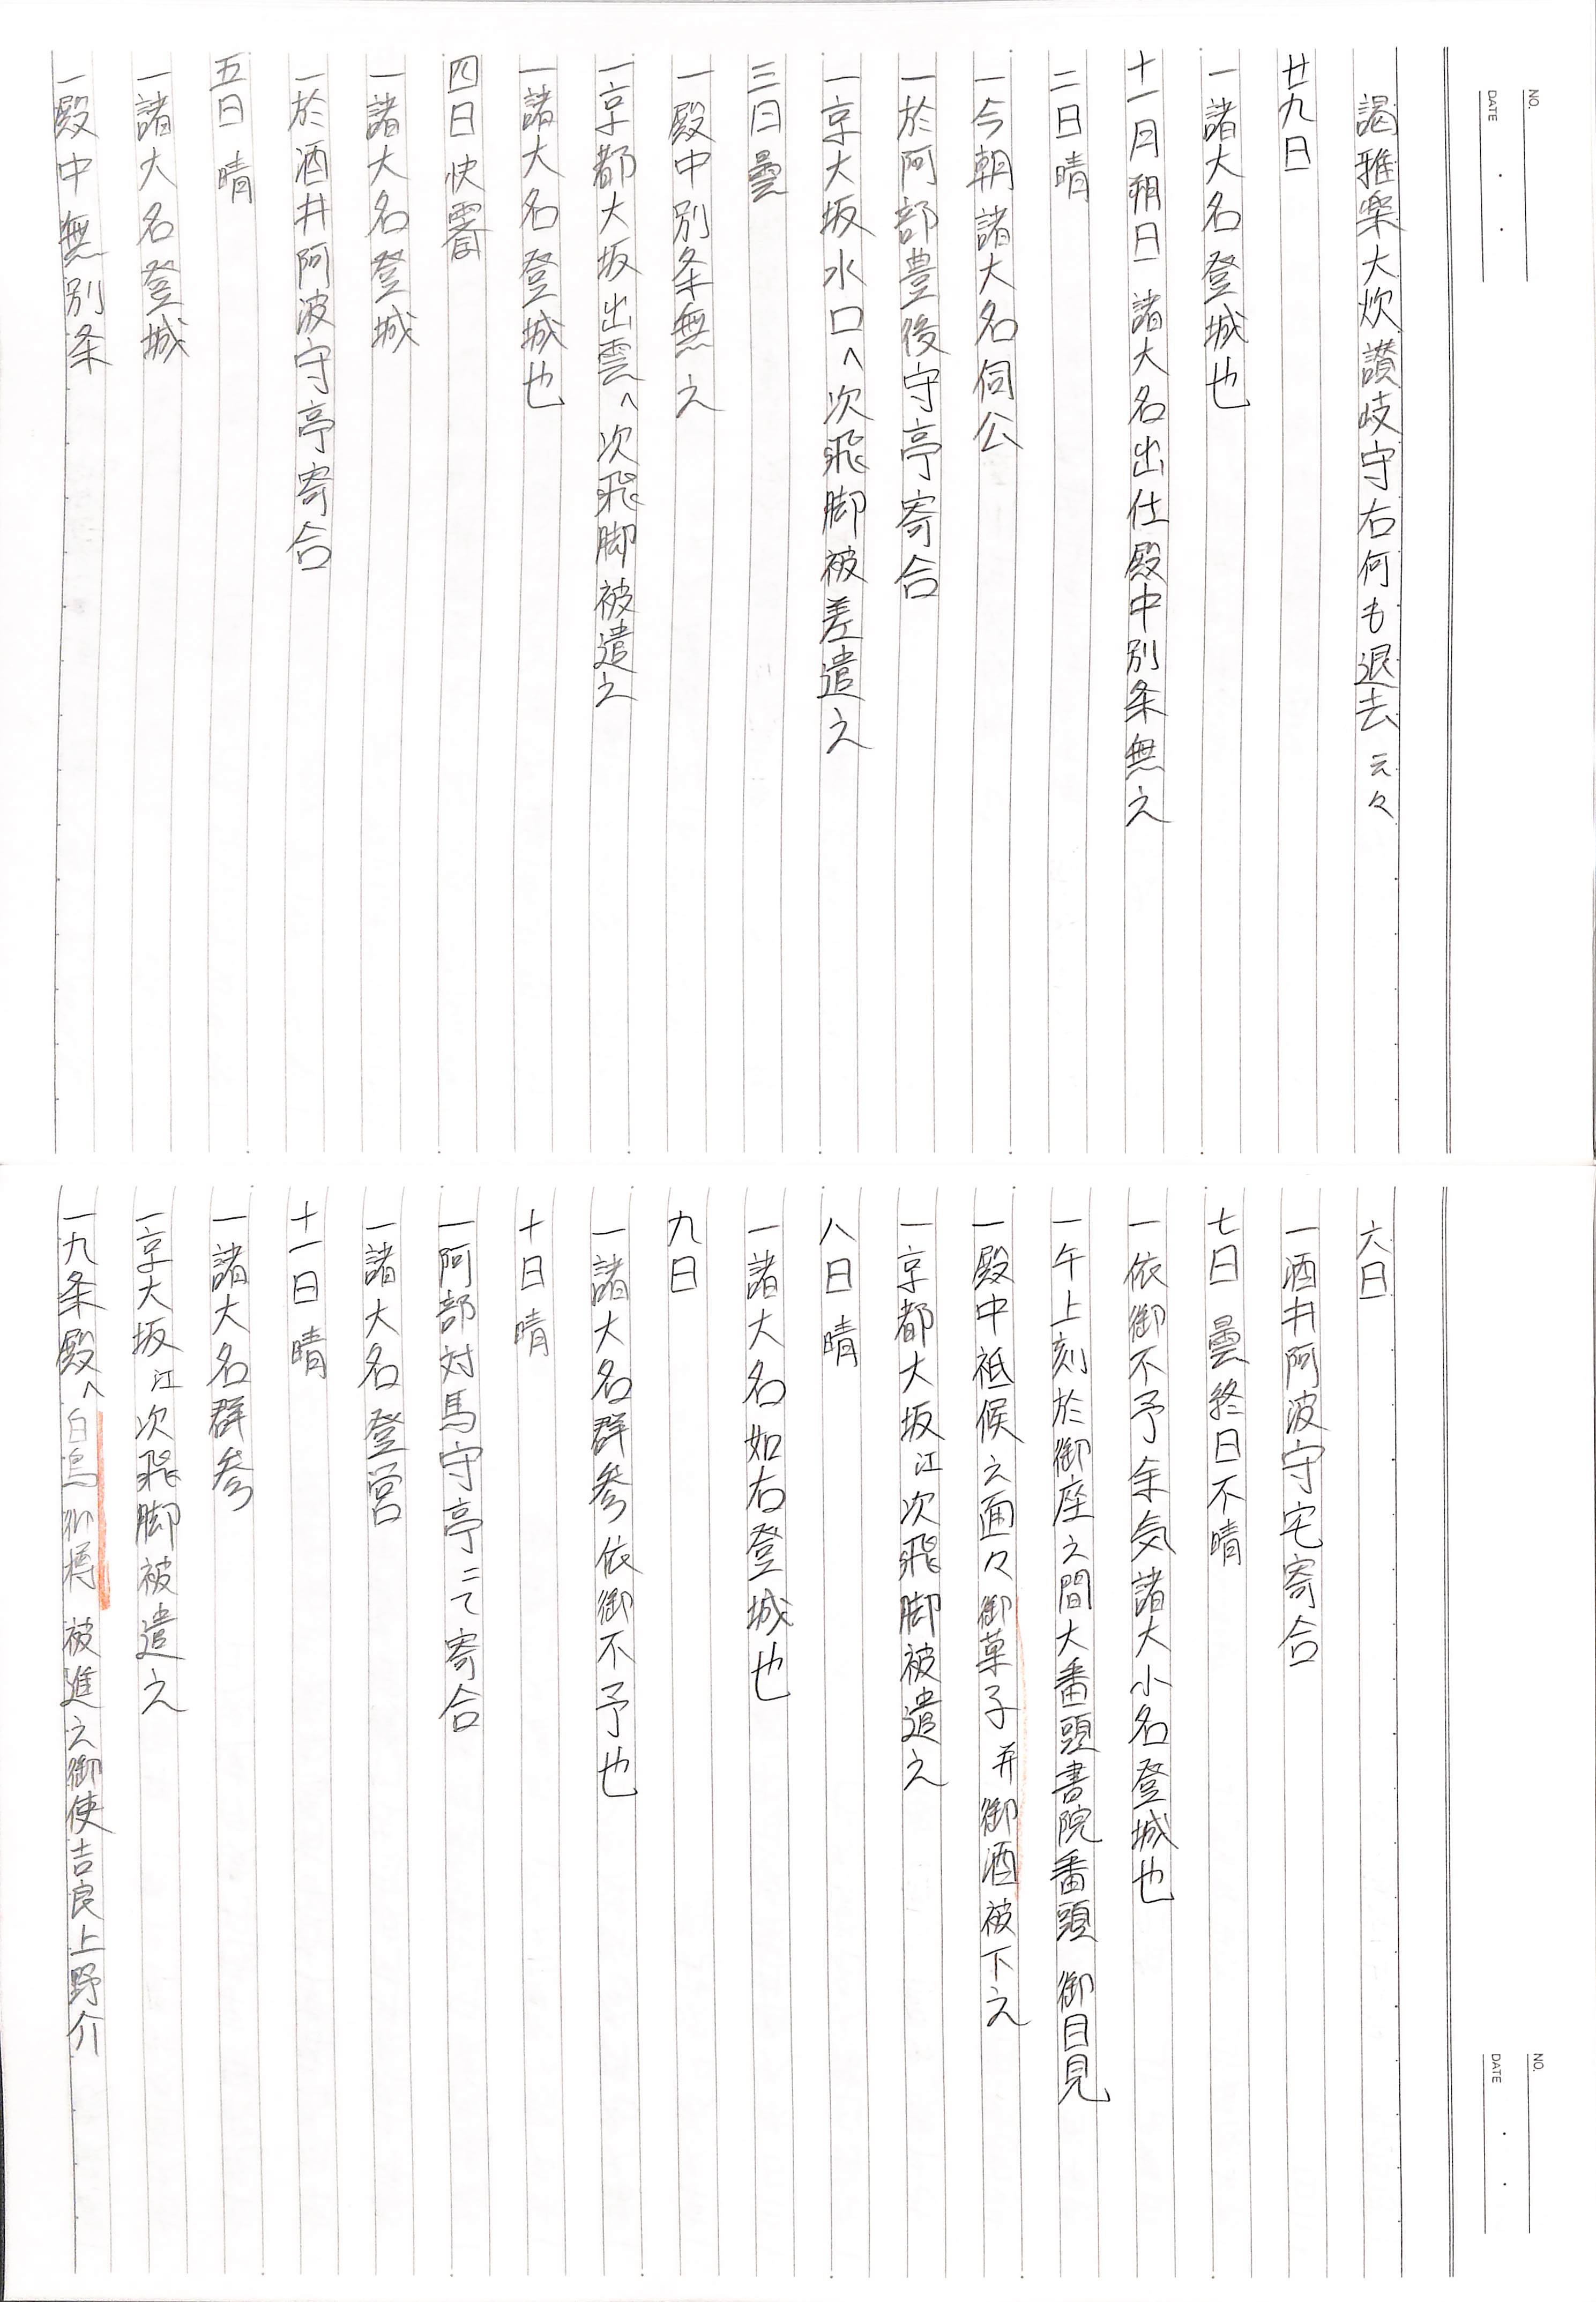 NO.
DATE
謁雅楽大炊讃岐守右何も退去云々
廿九日
一諸大名登城也
十一月朔日 諸大名出仕殿中別条無之
二日 晴
一今朝諸大名伺公
一於阿部豊後守亭寄合
一京大坂水口へ次飛脚被差遣之
三日 曇
一殿中別条無之
一京都大坂出雲へ次飛脚被遣之
一諸大名登城也
四日 快霽
一諸大名登城
一於酒井阿波守亭寄合
五日 晴
一諸大名登城
一殿中無別条
NO.
DATE
六日
一酒井阿波守宅寄合
七日 曇終日不晴
一依御不予余気諸大小名登城也
一午上刻於御座之間大番頭書院番頭 御目見
一殿中祗候之面々御菓子并御酒被下之
一京都大坂江次飛脚被遣之
八日 晴
一諸大名如右登城也
九日
一諸大名群参依御不予也
十日 晴
一阿部対馬守亭ニて寄合
一諸大名登営
十一日 晴
一諸大名群参
一京大坂江次飛脚被遣之
一九条殿へ白鳥御樽被進之御使吉良上野介